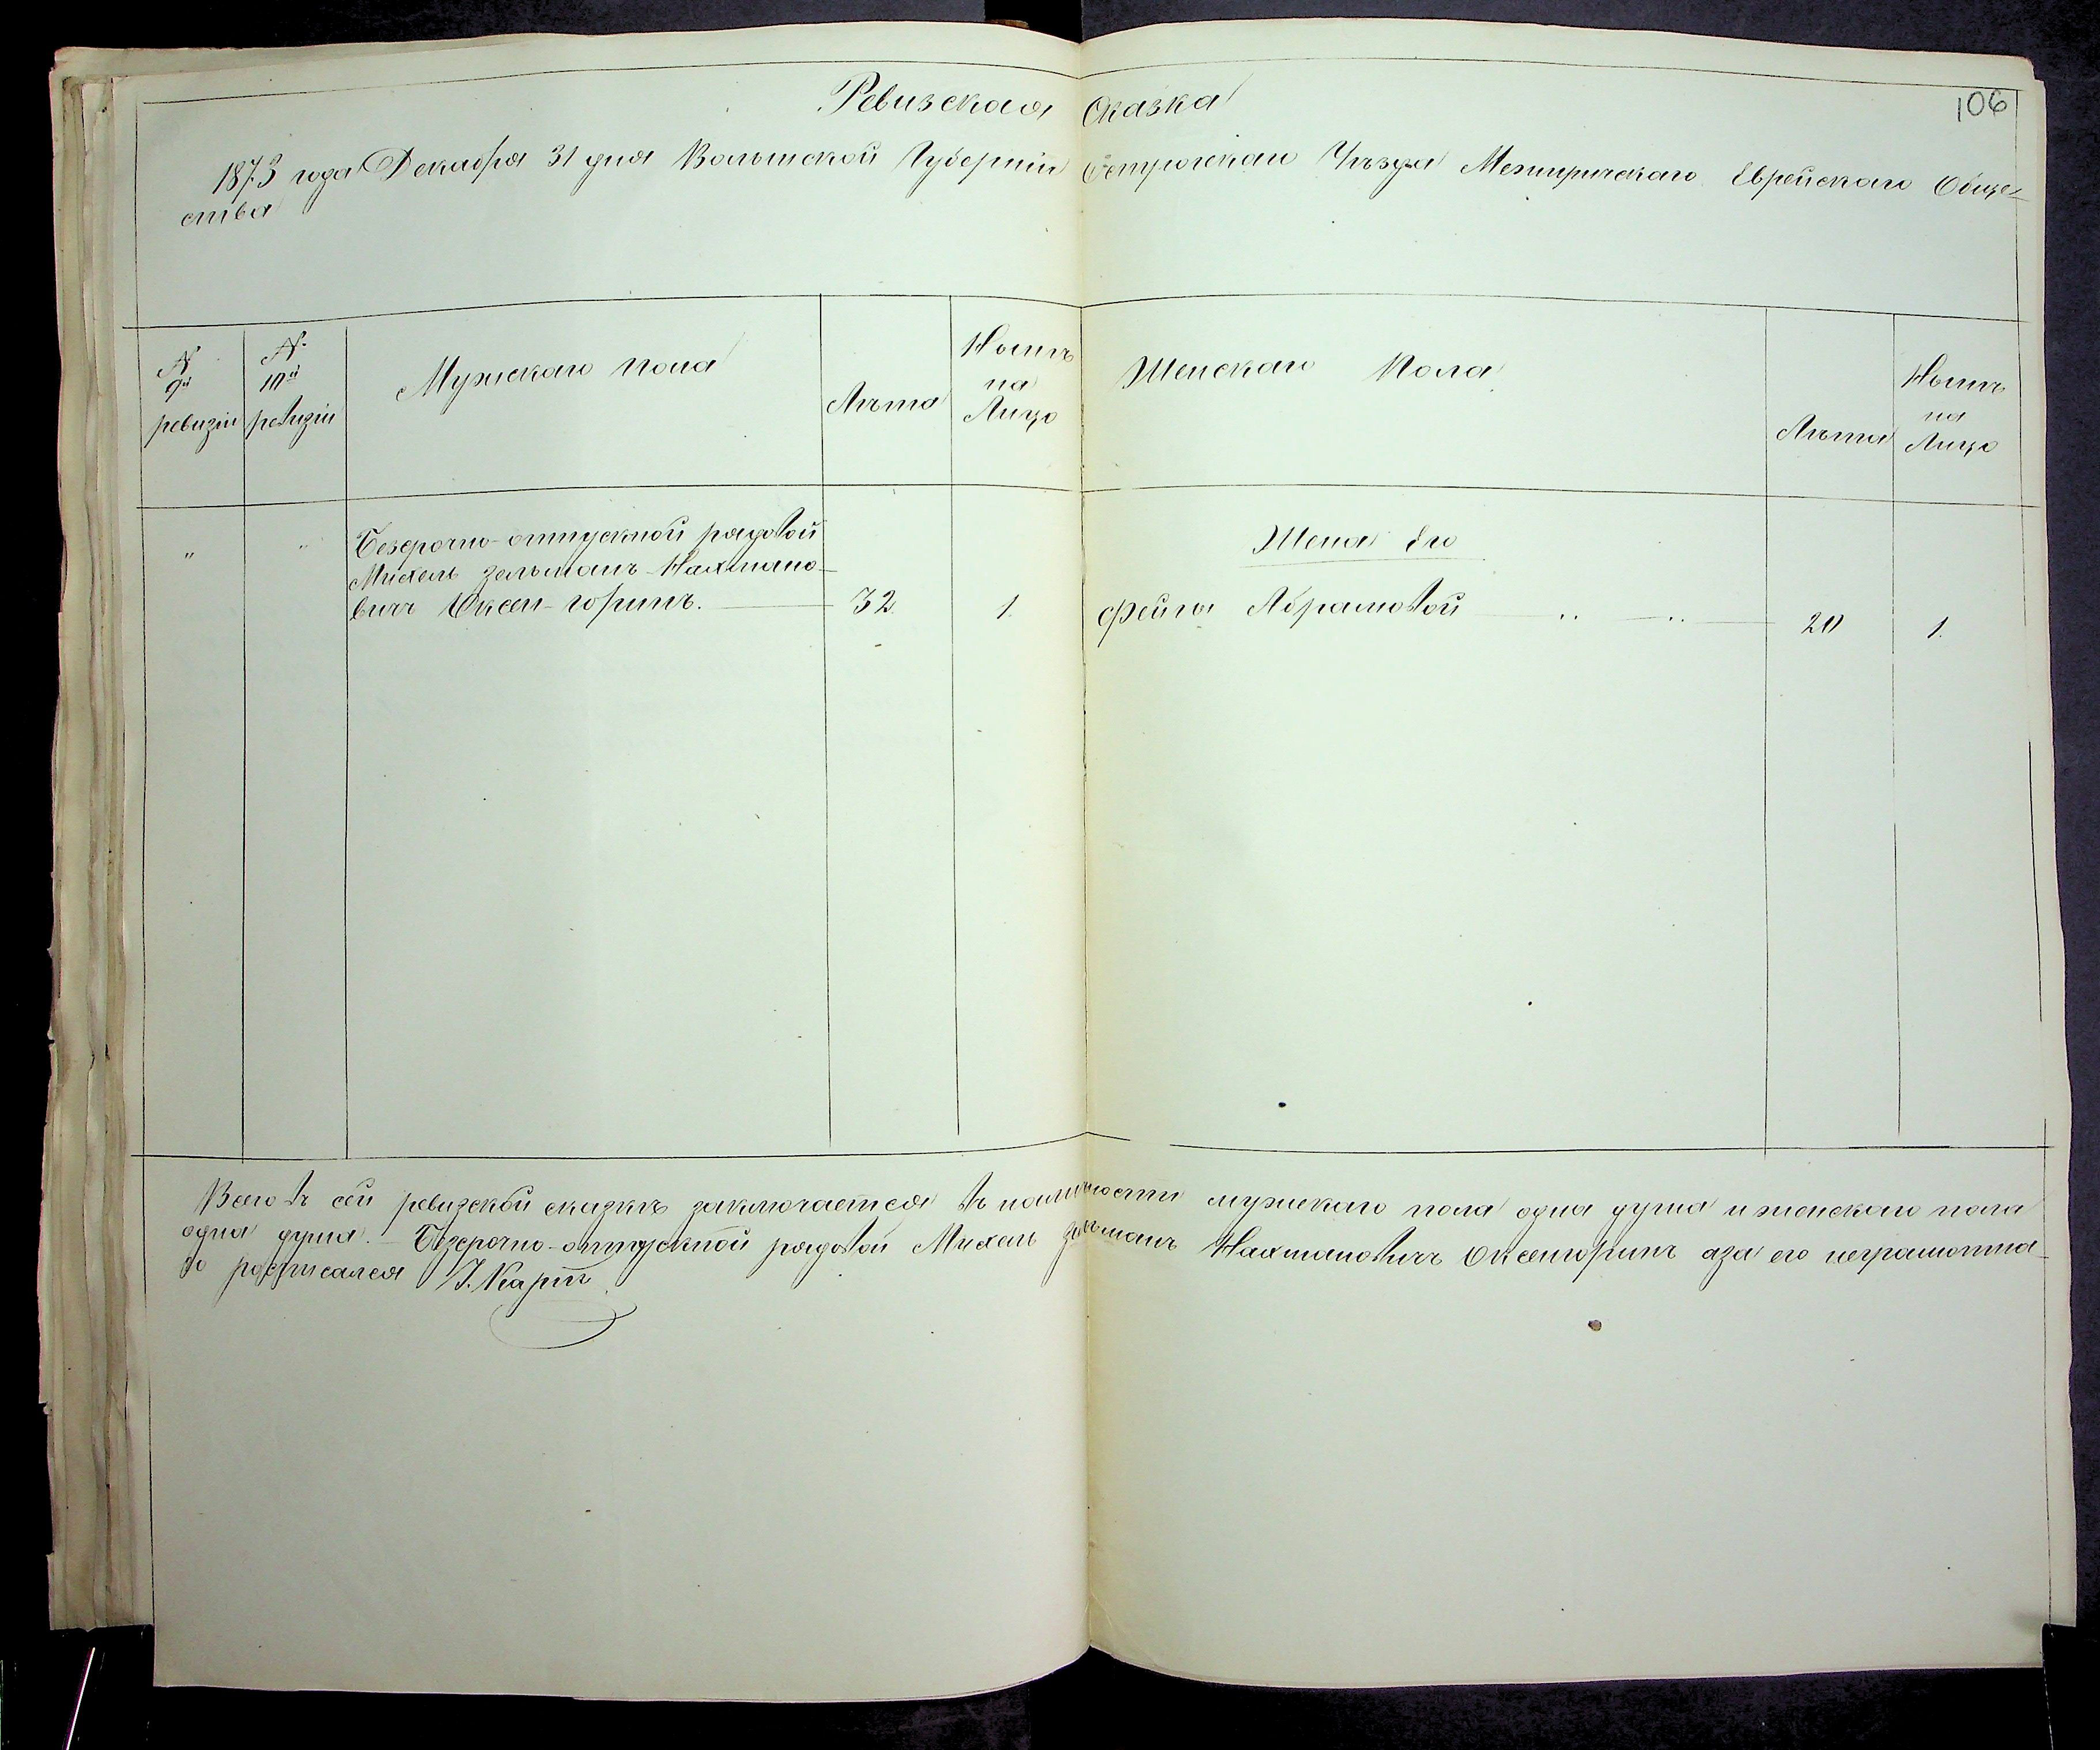 106
Ревизская Сказка
1873 года Декабря 31 дня Волынской Губерніи Острогскаго Уѣзда Межиричскаго Еврейскаго Обще-
ства
№ 9й ревизіи
№ 10й ревизіи
Мужскаго пола
Лѣта
Нынѣ на Лицо
Женскаго Пола
Лѣта
Нынѣ на Лицо
„ „ Безсрочно-отпускной рядовой
Михель Зельманъ Нахмано-
вичъ Оксен-горинъ. 32. 1.
Жена Его
Фейга Абрамовой 20 1.
Всего въ сей ревизской сказкѣ заключается въ наличности мужскаго пола одна душа и женскаго пола
одна душа. - Безсрочно-отпускной рядовой Михель Зельманъ Нахмановичъ Оксенгоринъ а за его неграмотна-
го росписался